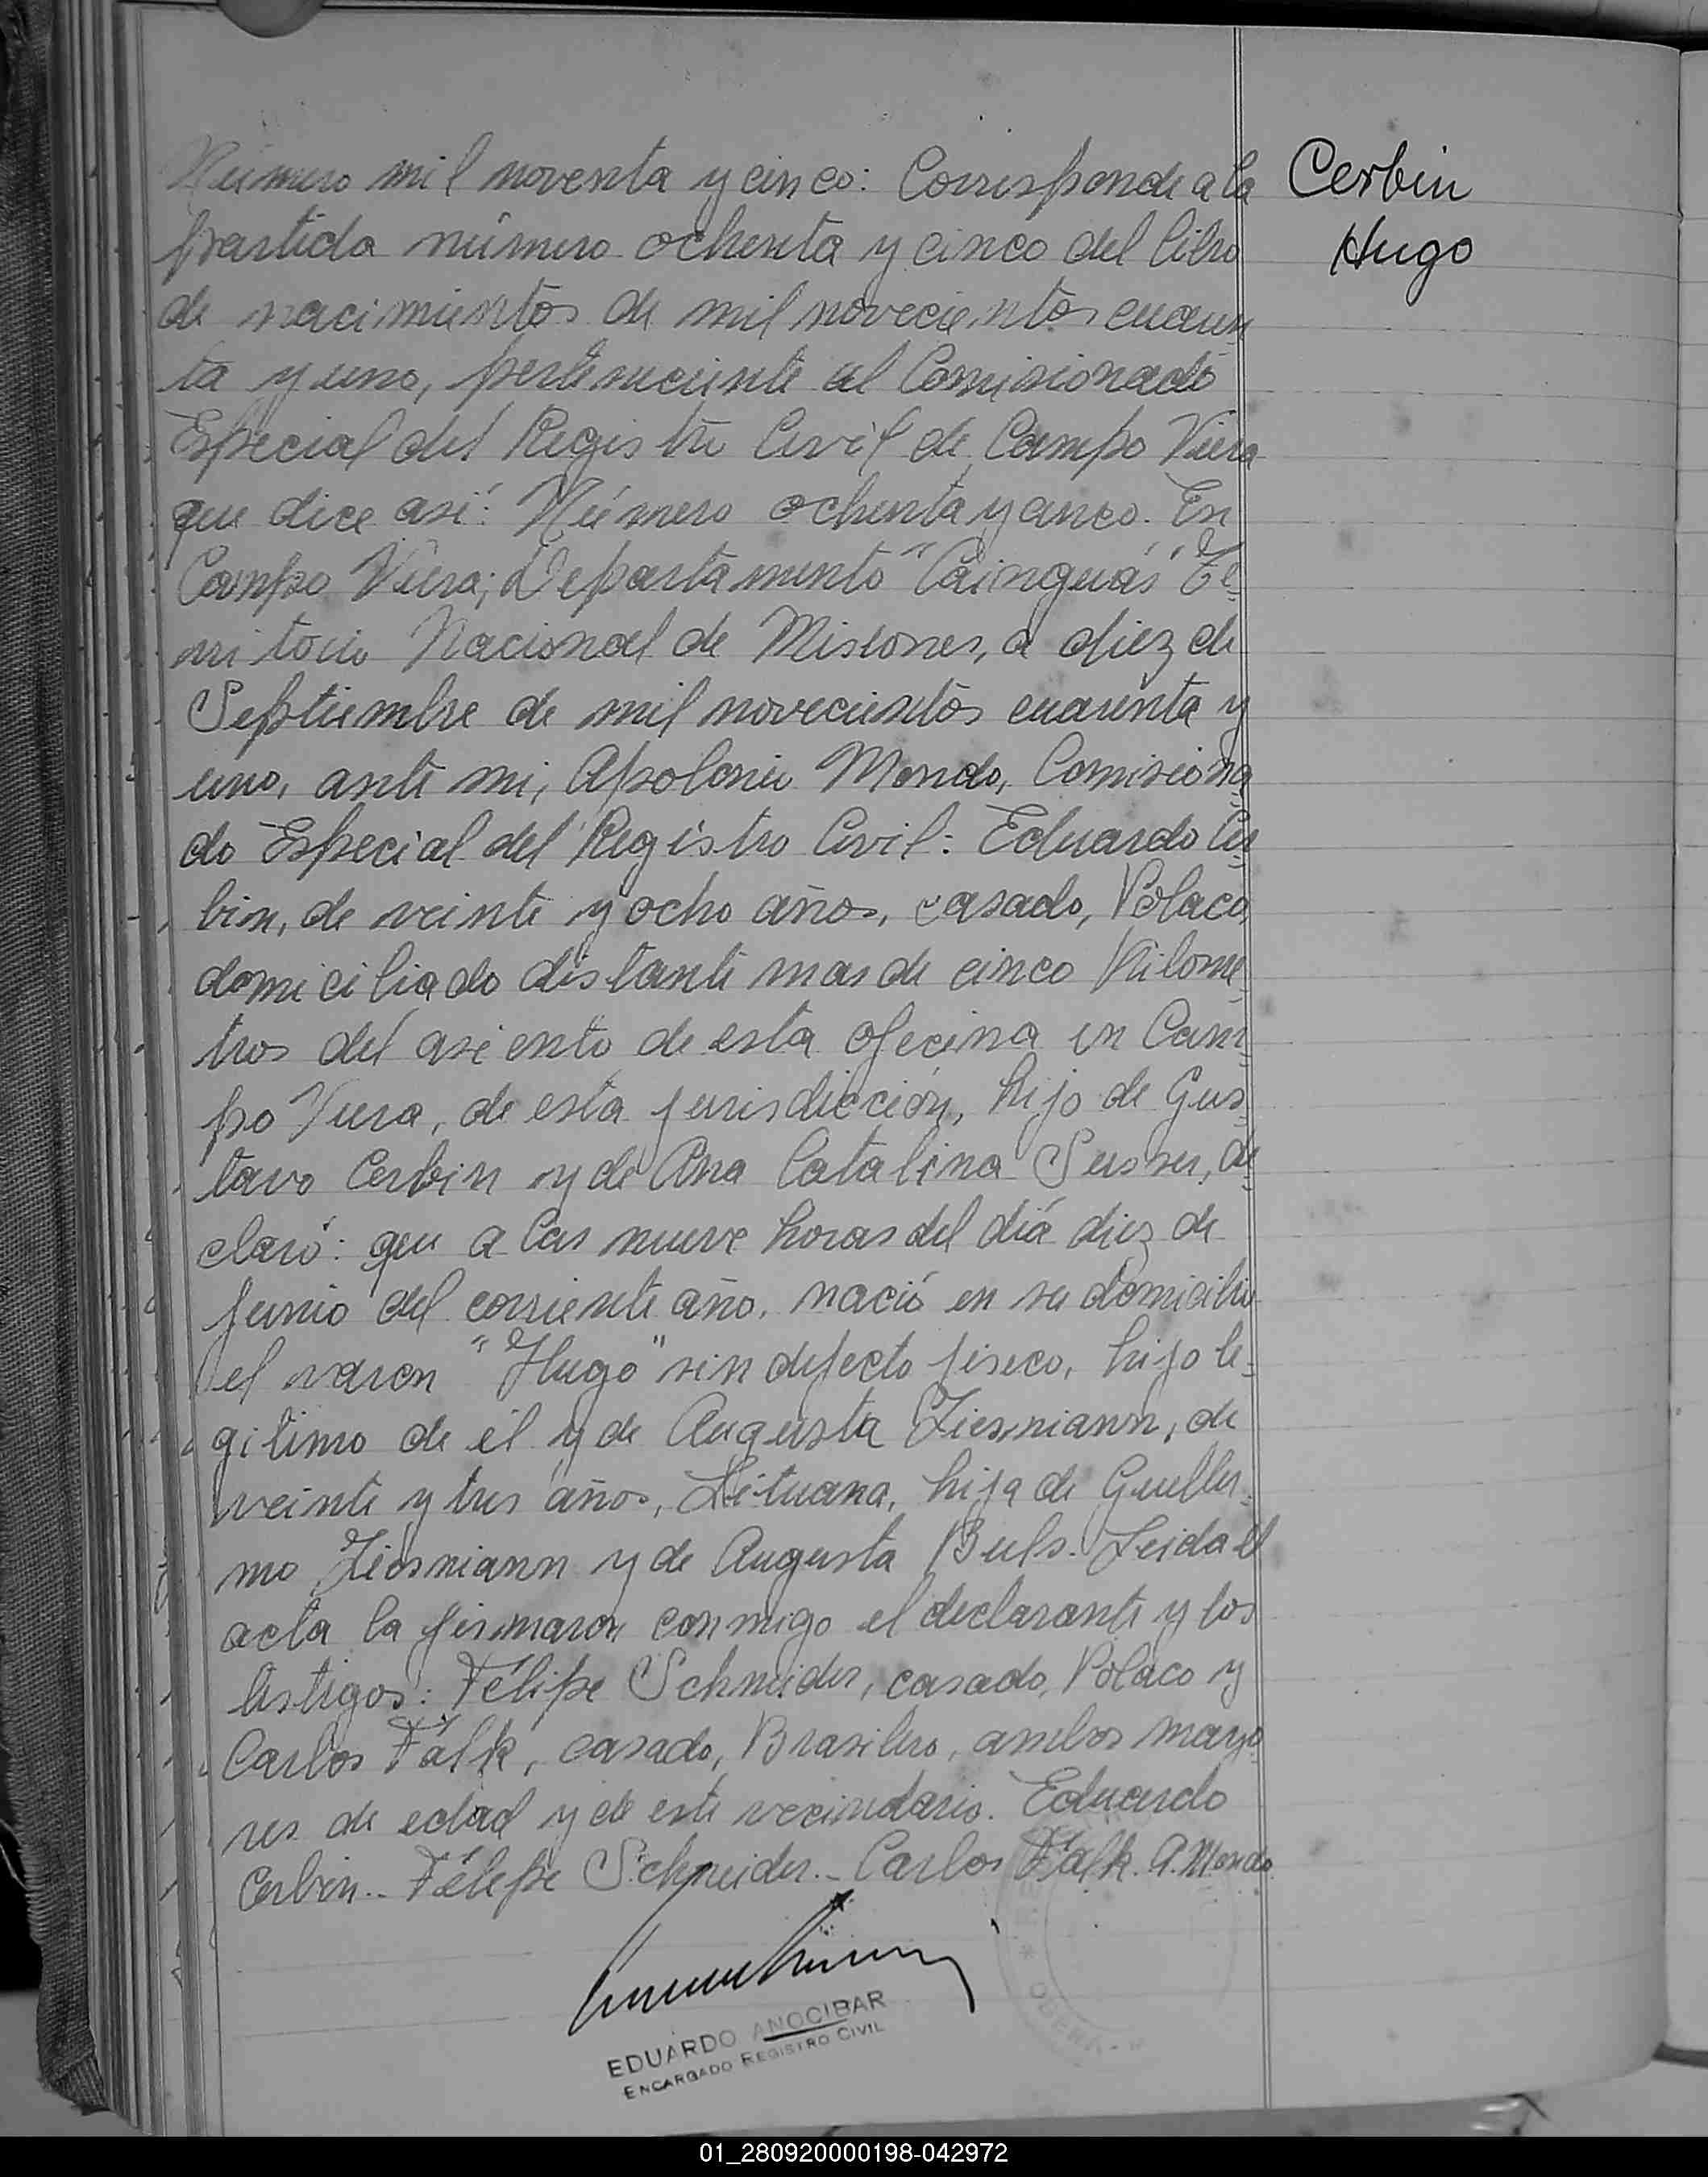 Número mil noventa y cinco: Corresponde a la
partida número ochenta y cinco del libro
de nacimientos de mil novecientos cuaren
ta y uno, perteneciente al Comisionado
Especial del Registro Civil de Campo Viera
que dice así: Número ochenta y cinco. En
Campo Viera; Departamento "Cainguás" Te-
rritorio Nacional de Misiones, a diez de
Septiembre de mil novecientos cuarenta y
uno, ante mi, Apolonio Mendo, Comisiona-
do Especial del Registro Civil: Eduardo Cer-
bin, de veinte y ocho años, casado, Polaco,
domiciliado distante mas de cinco Kilome-
tros del asiento de esta oficina en Cam-
po Viera, de esta jurisdicción, hijo de Gus-
tavo Cerbin y de Ana Catalina de-
claró: que a las nueve horas del día diez de
junio del corriente año, nació en su domicilio
el varon "Hugo" sin defecto fisico, hijo le-
gitimo de él y de Augusta Ziesmann, de
veinte y tres años, Lituana, hija de Guiller-
mo Ziesmann y de Augusta Buls. Leida el
acta la firmaron conmigo el declarante y los
testigos: Félipe Schneider, casado, Polaco y
Carlos Falk, casado, Brasilero, ambos mayo
res de edad y de este vecindario. Eduardo
Cerbin.- Félipe Schneider.- Carlos Falk. A. Mendo
Cerbin
Hugo
EDUARDO ANOCIBAR
ENCARGADO REGISTRO CIVIL
01_280920000198-042972